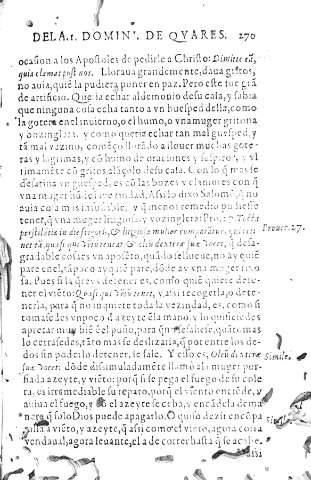 DE LA .I. DOMIN'. DE QVARES. 270
ocasion a los Apostoles de pedirle a Christo: Dimitte eã,
quia clamat post nos. Lloraua grandemente, daua gritos,
no auia, quiē la pudiera poner en paz. Pero este fue grã
de artificio. Queria echar al demonio de su casa, y sabia
que ninguna cosa echa tanto a vn huesped della, como
la gotera en el inuierno, o el humo, o vna muger gritona
y vozinglera. y como queria echar tan mal guesped, y
tã mal vezino, comẽço llorãdo a llouer muchas gote-
ras y lagrimas, y cõ humo de oraciones y suspiros, y vl
timamẽte cõ gritos alãçolo desu casa. Con lo q̃ mas se
desatina vn guesped, es cõ las bozes y clamores con q̃
vna muger
no auia cosa mas insufrible, y q̃ menos remedio pudiesse
tener, q̃ vna muger litigiosa y vozinglera: Pro.27. Tecta
perstillātia in die frigoris, & litigiosa mulier comparātur, qui reti-
net eã, quasi qui ventum teneat & oleũ dexteræ suæ vocet, q̃ desa-
Prouer. 27.
gradable cosa es vn aposẽto, quãdo llueue, no ay quiẽ
pare en el, tãpoco ay quiẽ pare, dõde ay vna muger
sa. Pues si la q̃reys detener, es como quiẽ quiere dete-
ner el viẽto: Quasi qui ventũ tenet, y assi recogerla, o dete-
nerla, para q̃ no inquiete toda la vezindad, es, como si
tomasedes vn poco d'azeyte ẽ la mano, y lo quisiesedes
apretar muy biẽ del puño, para q̃ no se saliese, quãto mas
lo cerrasedes, tãto mas se deslizaria, q̃ por entre los de-
dos sin poderlo detener, se sale. Y esso es, Oleũ dexteræ
Simile.
suæ vocet: dõde disimuladamẽte llamò ala muger por-
fiada azeyte, y viẽto: porq̃ si se pega el fuego de su cole
ra, es irremediable su reparo, porq̃ el viento enciẽde, y
auiua el fuego, y cõ el azeyte se ceba, y encãdela de ma
nera q̃ solo Dios puede apagarlo. O quiso dezir encõpa
Simile.
rarla a viẽto, y azeyte, q̃ assi como el viẽto, agora corra
vendaual, agora leuante, el a de correr hasta q̃ se acabe.